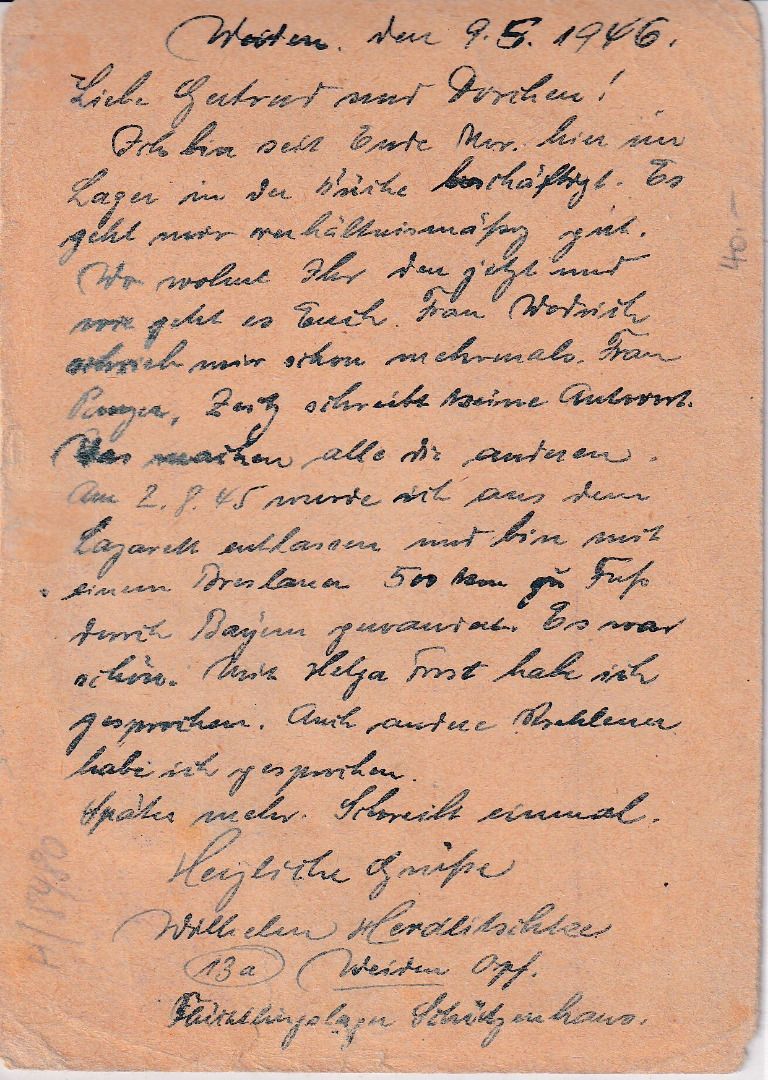 Weiden. den 9.5. 1946.
Liebe Gertrud und Dorchen!
Ich bin seit Ende Nov. hier im
Lager in der Küche beschäftigt. Es
geht mir verhältnismäßig gut.
Wo wohnt Ihr den jetzt und
wie geht es Euch. Frau Wodrich
schrieb mir schon mehrmals. Frau
Zeitz schreibt keine Antwort.
Was machen alle die anderen.
Am 2.8.45 wurde ich aus dem
Lazarett entlassen und bin mit
einem Breslauer 500 km zu Fuß
durch Bayern gewandert. Es war
schön. Mit Helga Forst habe ich
gesprochen. Auch andere
habe ich gesprochen.
Später mehr. Schreibt einmal.
Herzliche Grüße
Wilhelm
13a Weiden Opf.
Flüchtlingslager Schützenhaus.
40.-